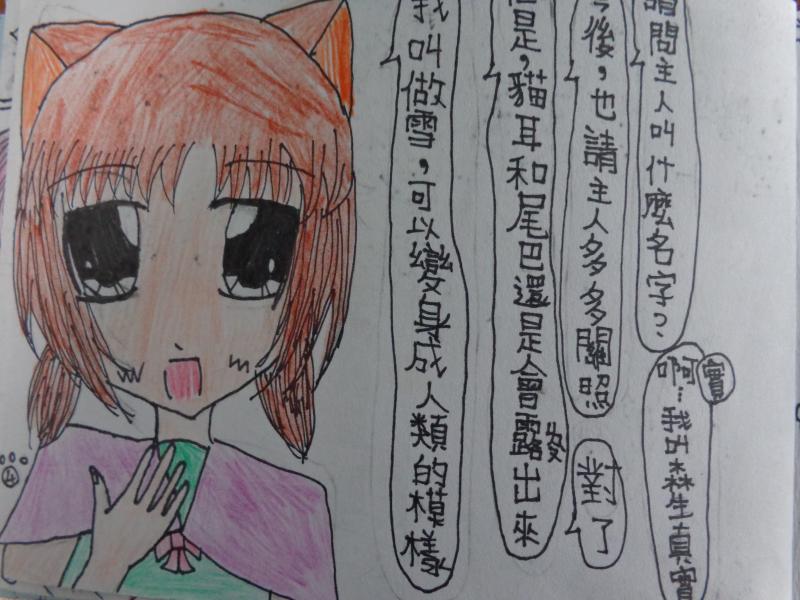 我叫做雪，可以變身成人類的模樣
但是，貓耳和尾巴還是會露出來
今後，也請主人多多關照
對了
請問主人叫什麼名字？
實
啊…我叫森生真實
④